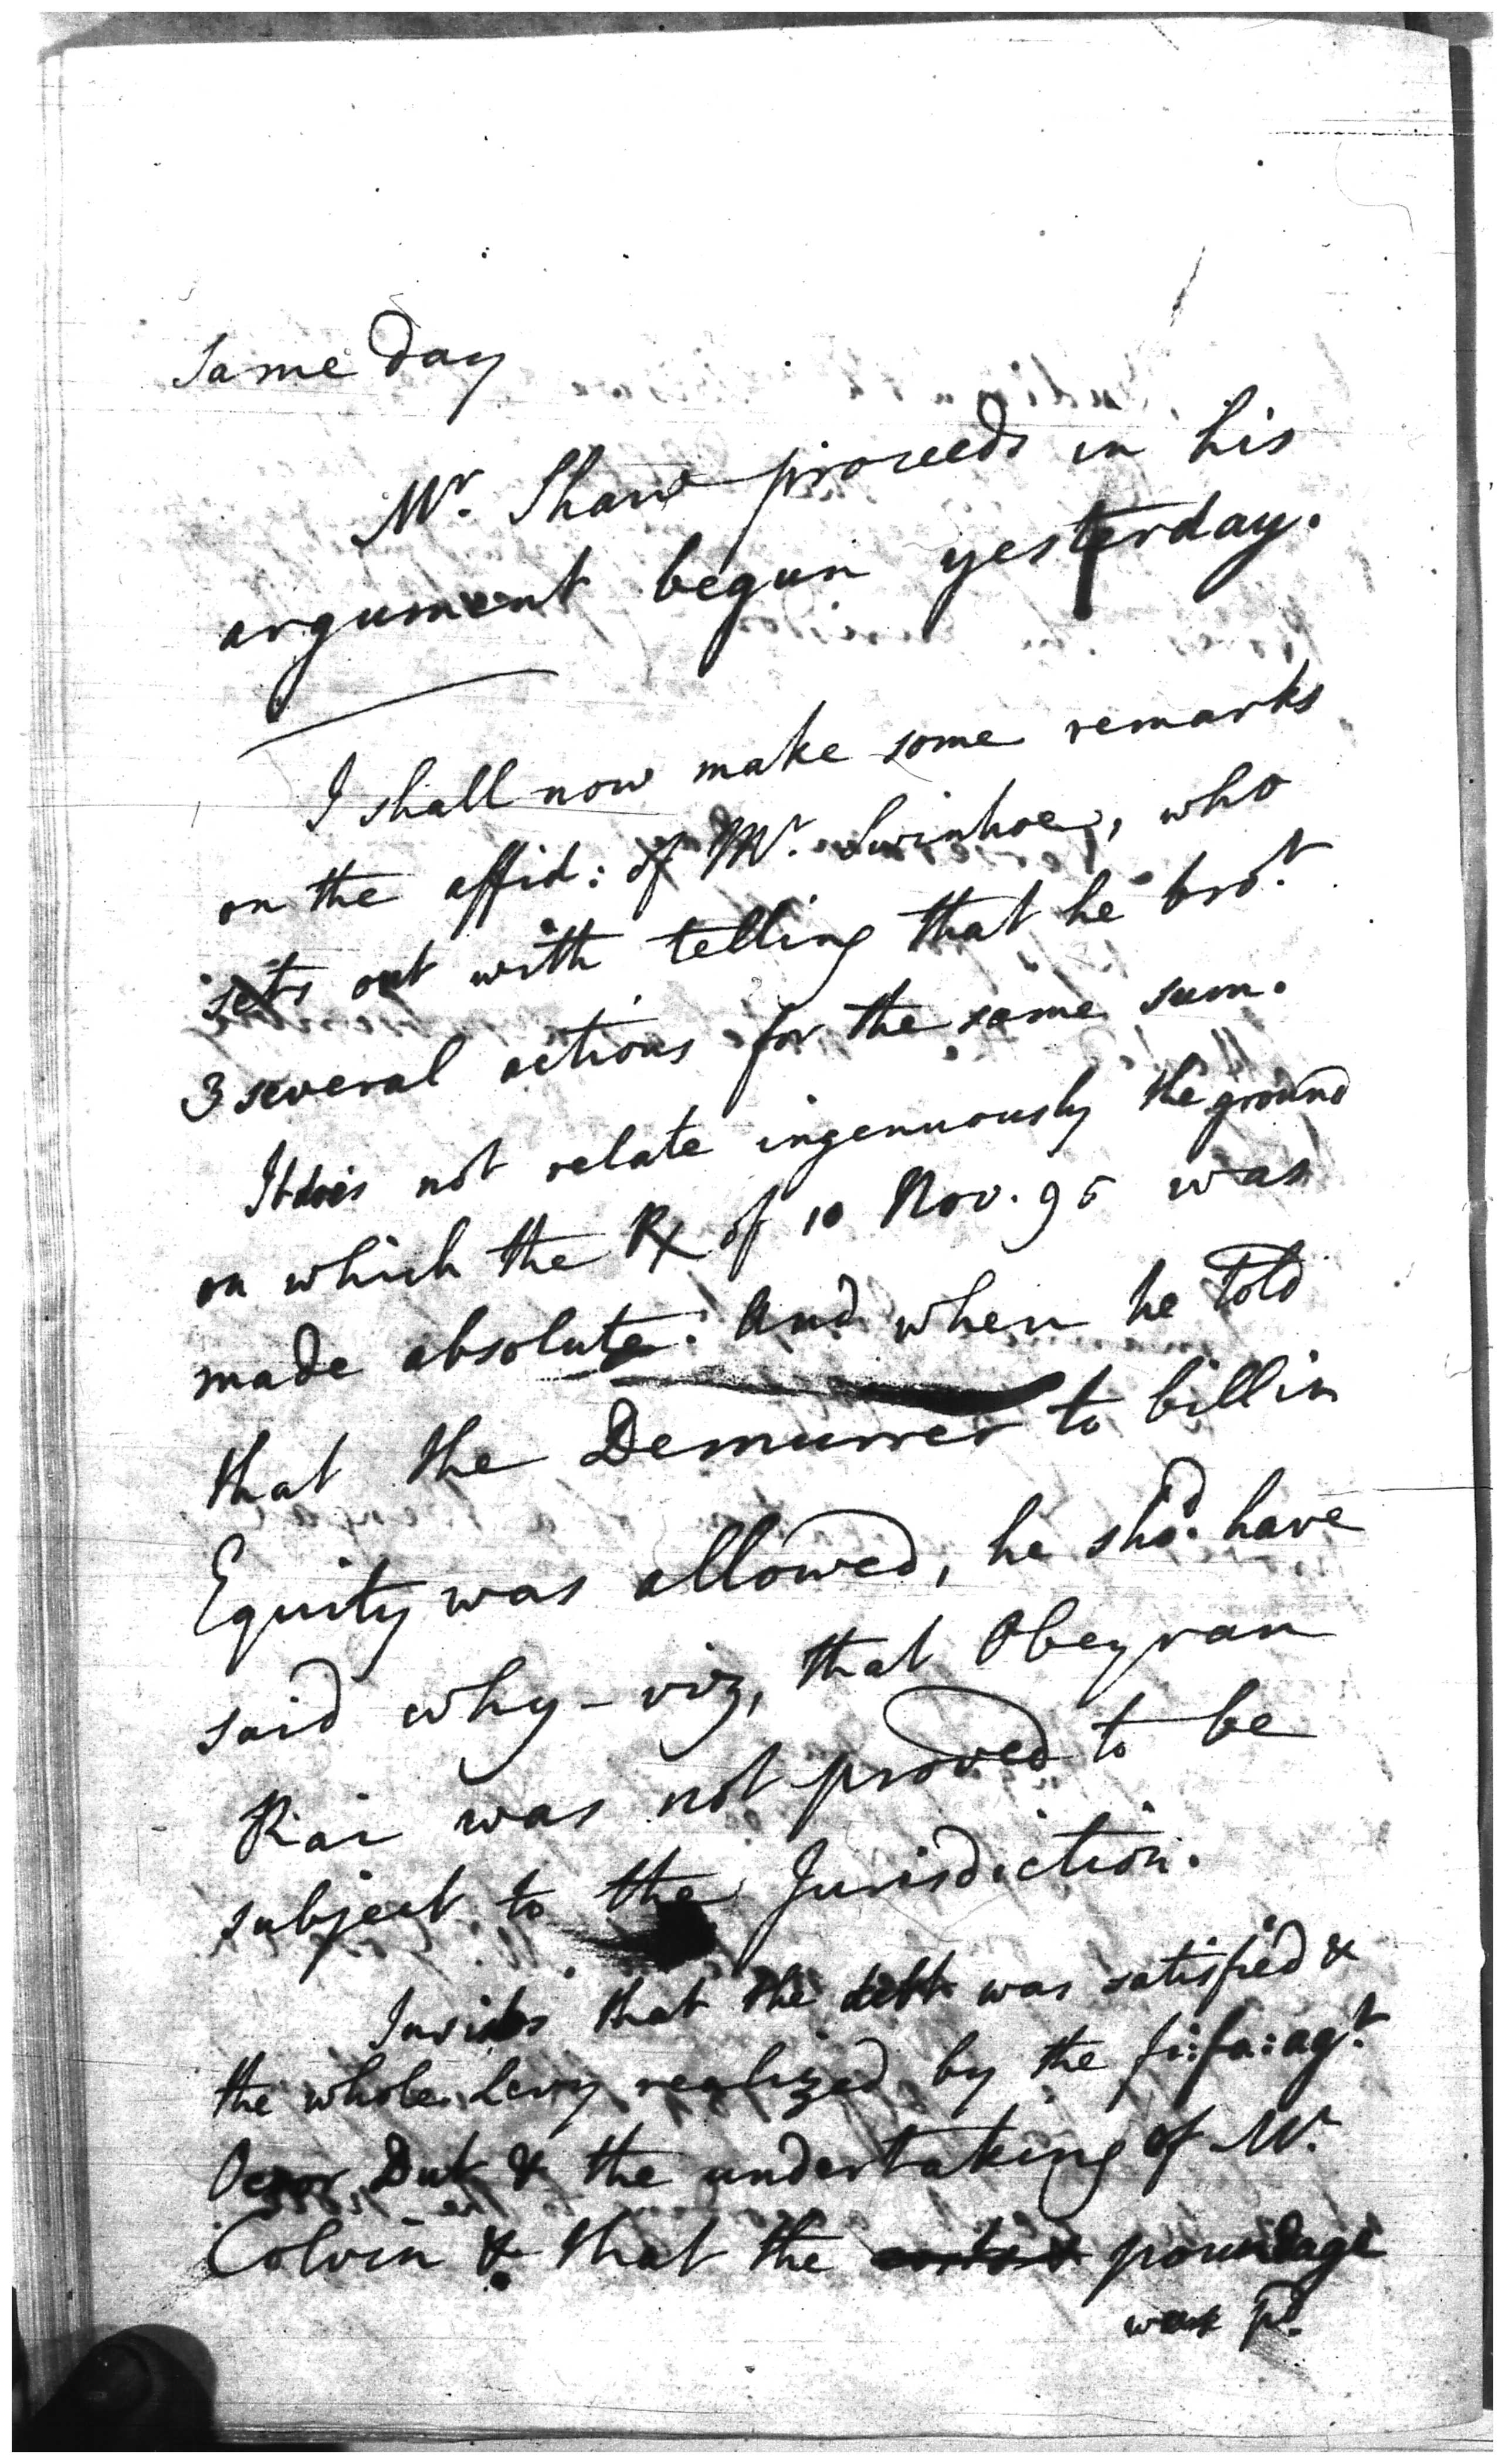 Same day
Mr. Shaw proceeds in his
argument begun yesterday.
I shall now make some remarks
on the affid: of Mr. Swinhoe, who
sets out with telling that he bro.t
3 several actions for the same sum.
It does not relate ingenuously the ground
on which the R of 10 Nov. 95 was
made absolute. And when he told
that the Demurrer to bill in
Equity was allowed, he sho.d have
said why - viz, that Obeyram
Rai was not proved to be
subject to the Jurisdiction.
Insists that the debt was satisfied &
the whole Levy realized by the fi:fa: ag.t
Dut & the undertaking of Mr.
Colvin & that the poundage
was p.d